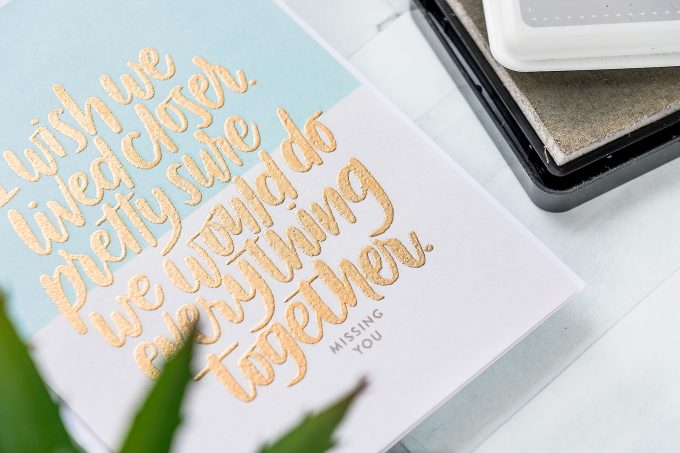 I wish we
lived closer.
pretty sure
we would do
everything
together.
MISSING
YOU